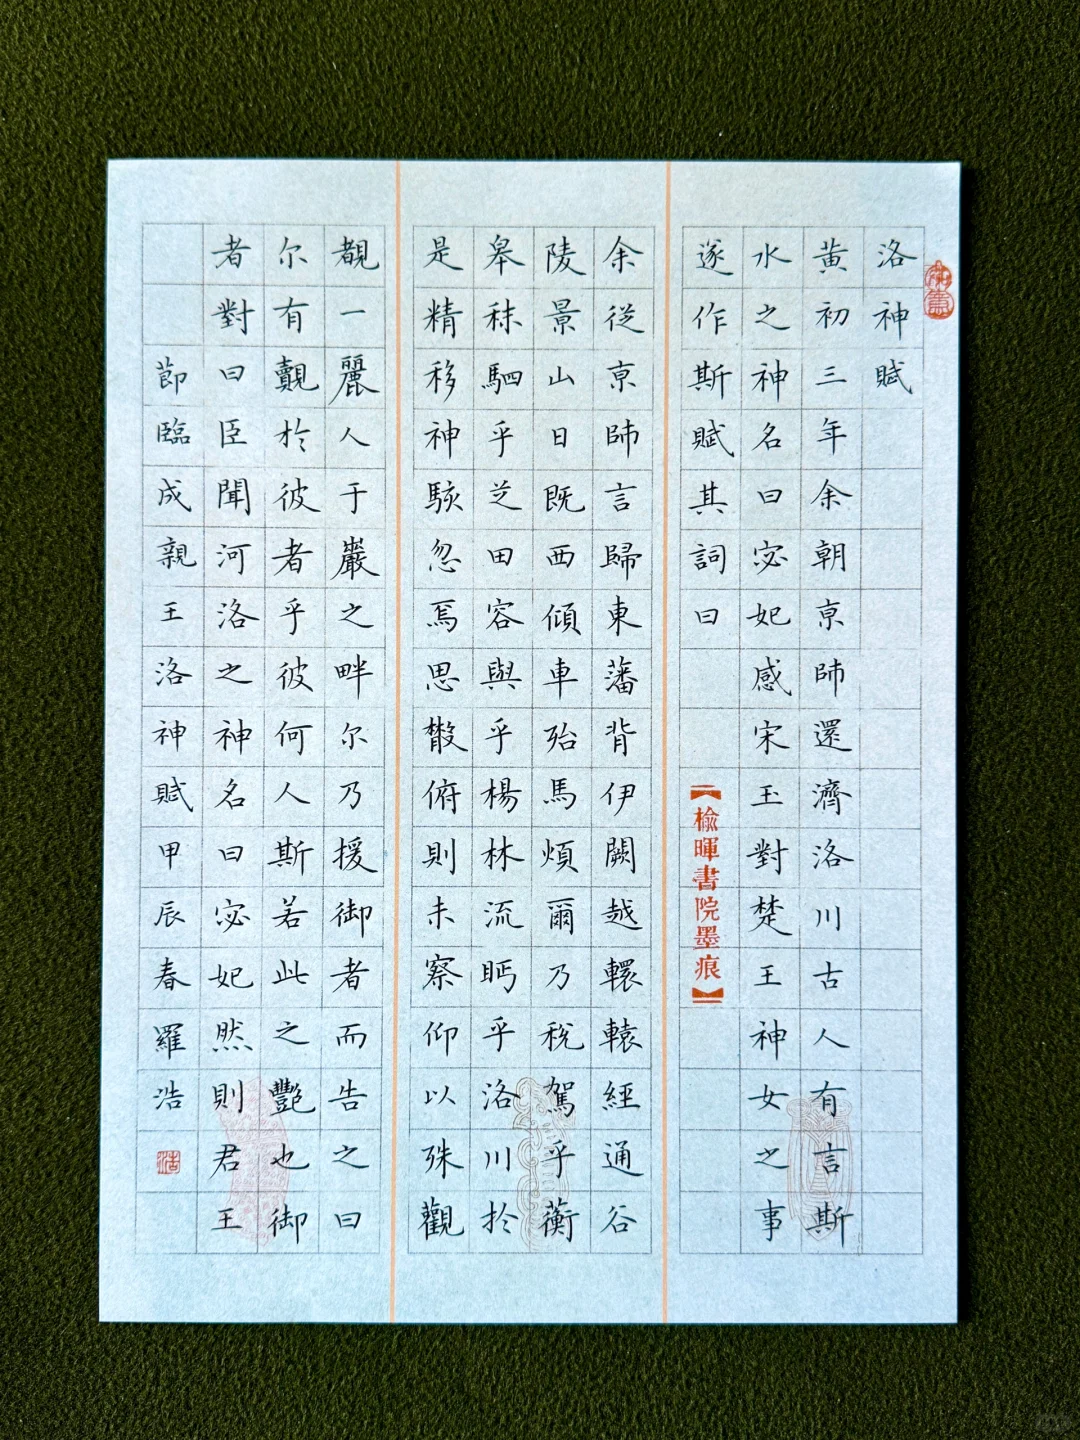 洛神賦
黃初三年余朝京師還濟洛川古人有言斯
水之神名曰宓妃感宋玉對楚王神女之事
遂作斯賦其詞曰
【榆暉書院墨痕】
余從京師言歸東藩背伊闕越轘轅經通谷
陵景山日既西傾車殆馬煩爾乃稅駕乎蘅
皋秣駟乎芝田容與乎楊林流眄乎洛川於
是精移神駭忽焉思散俯則未察仰以殊觀
覩一麗人于巖之畔尔乃援御者而告之曰
尔有覿於彼者乎彼何人斯若此之艷也御
者對曰臣聞河洛之神名曰宓妃然則君王
節臨成親王洛神賦甲辰春羅浩
浩